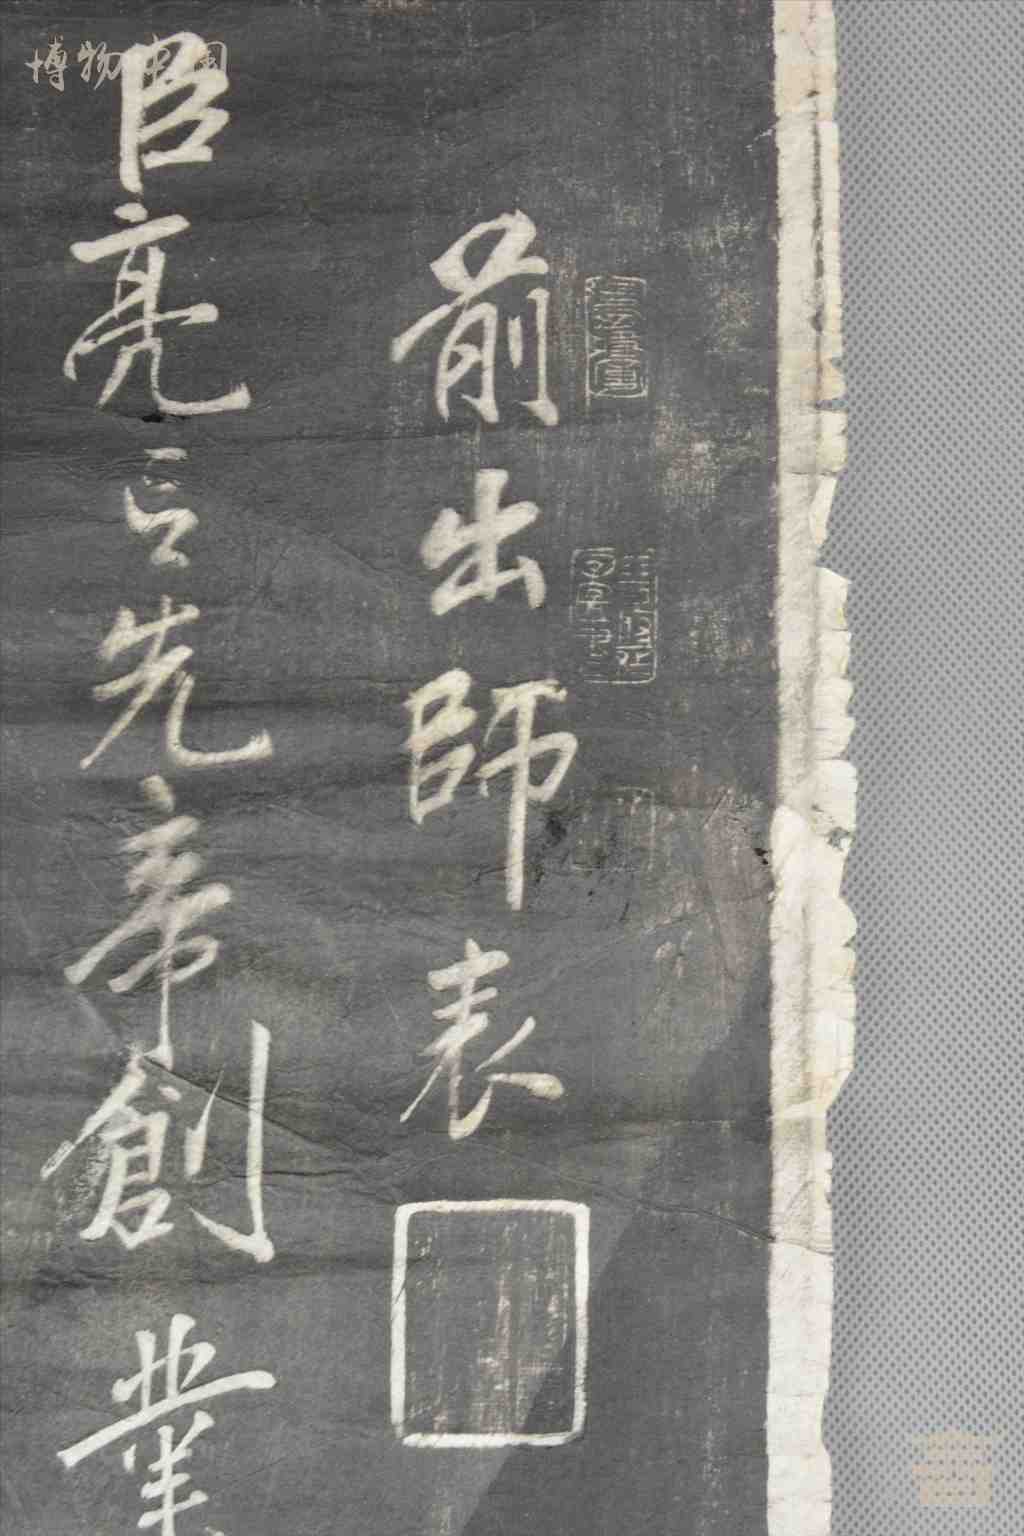 前出師表
臣亮言先帝創業
博物中国